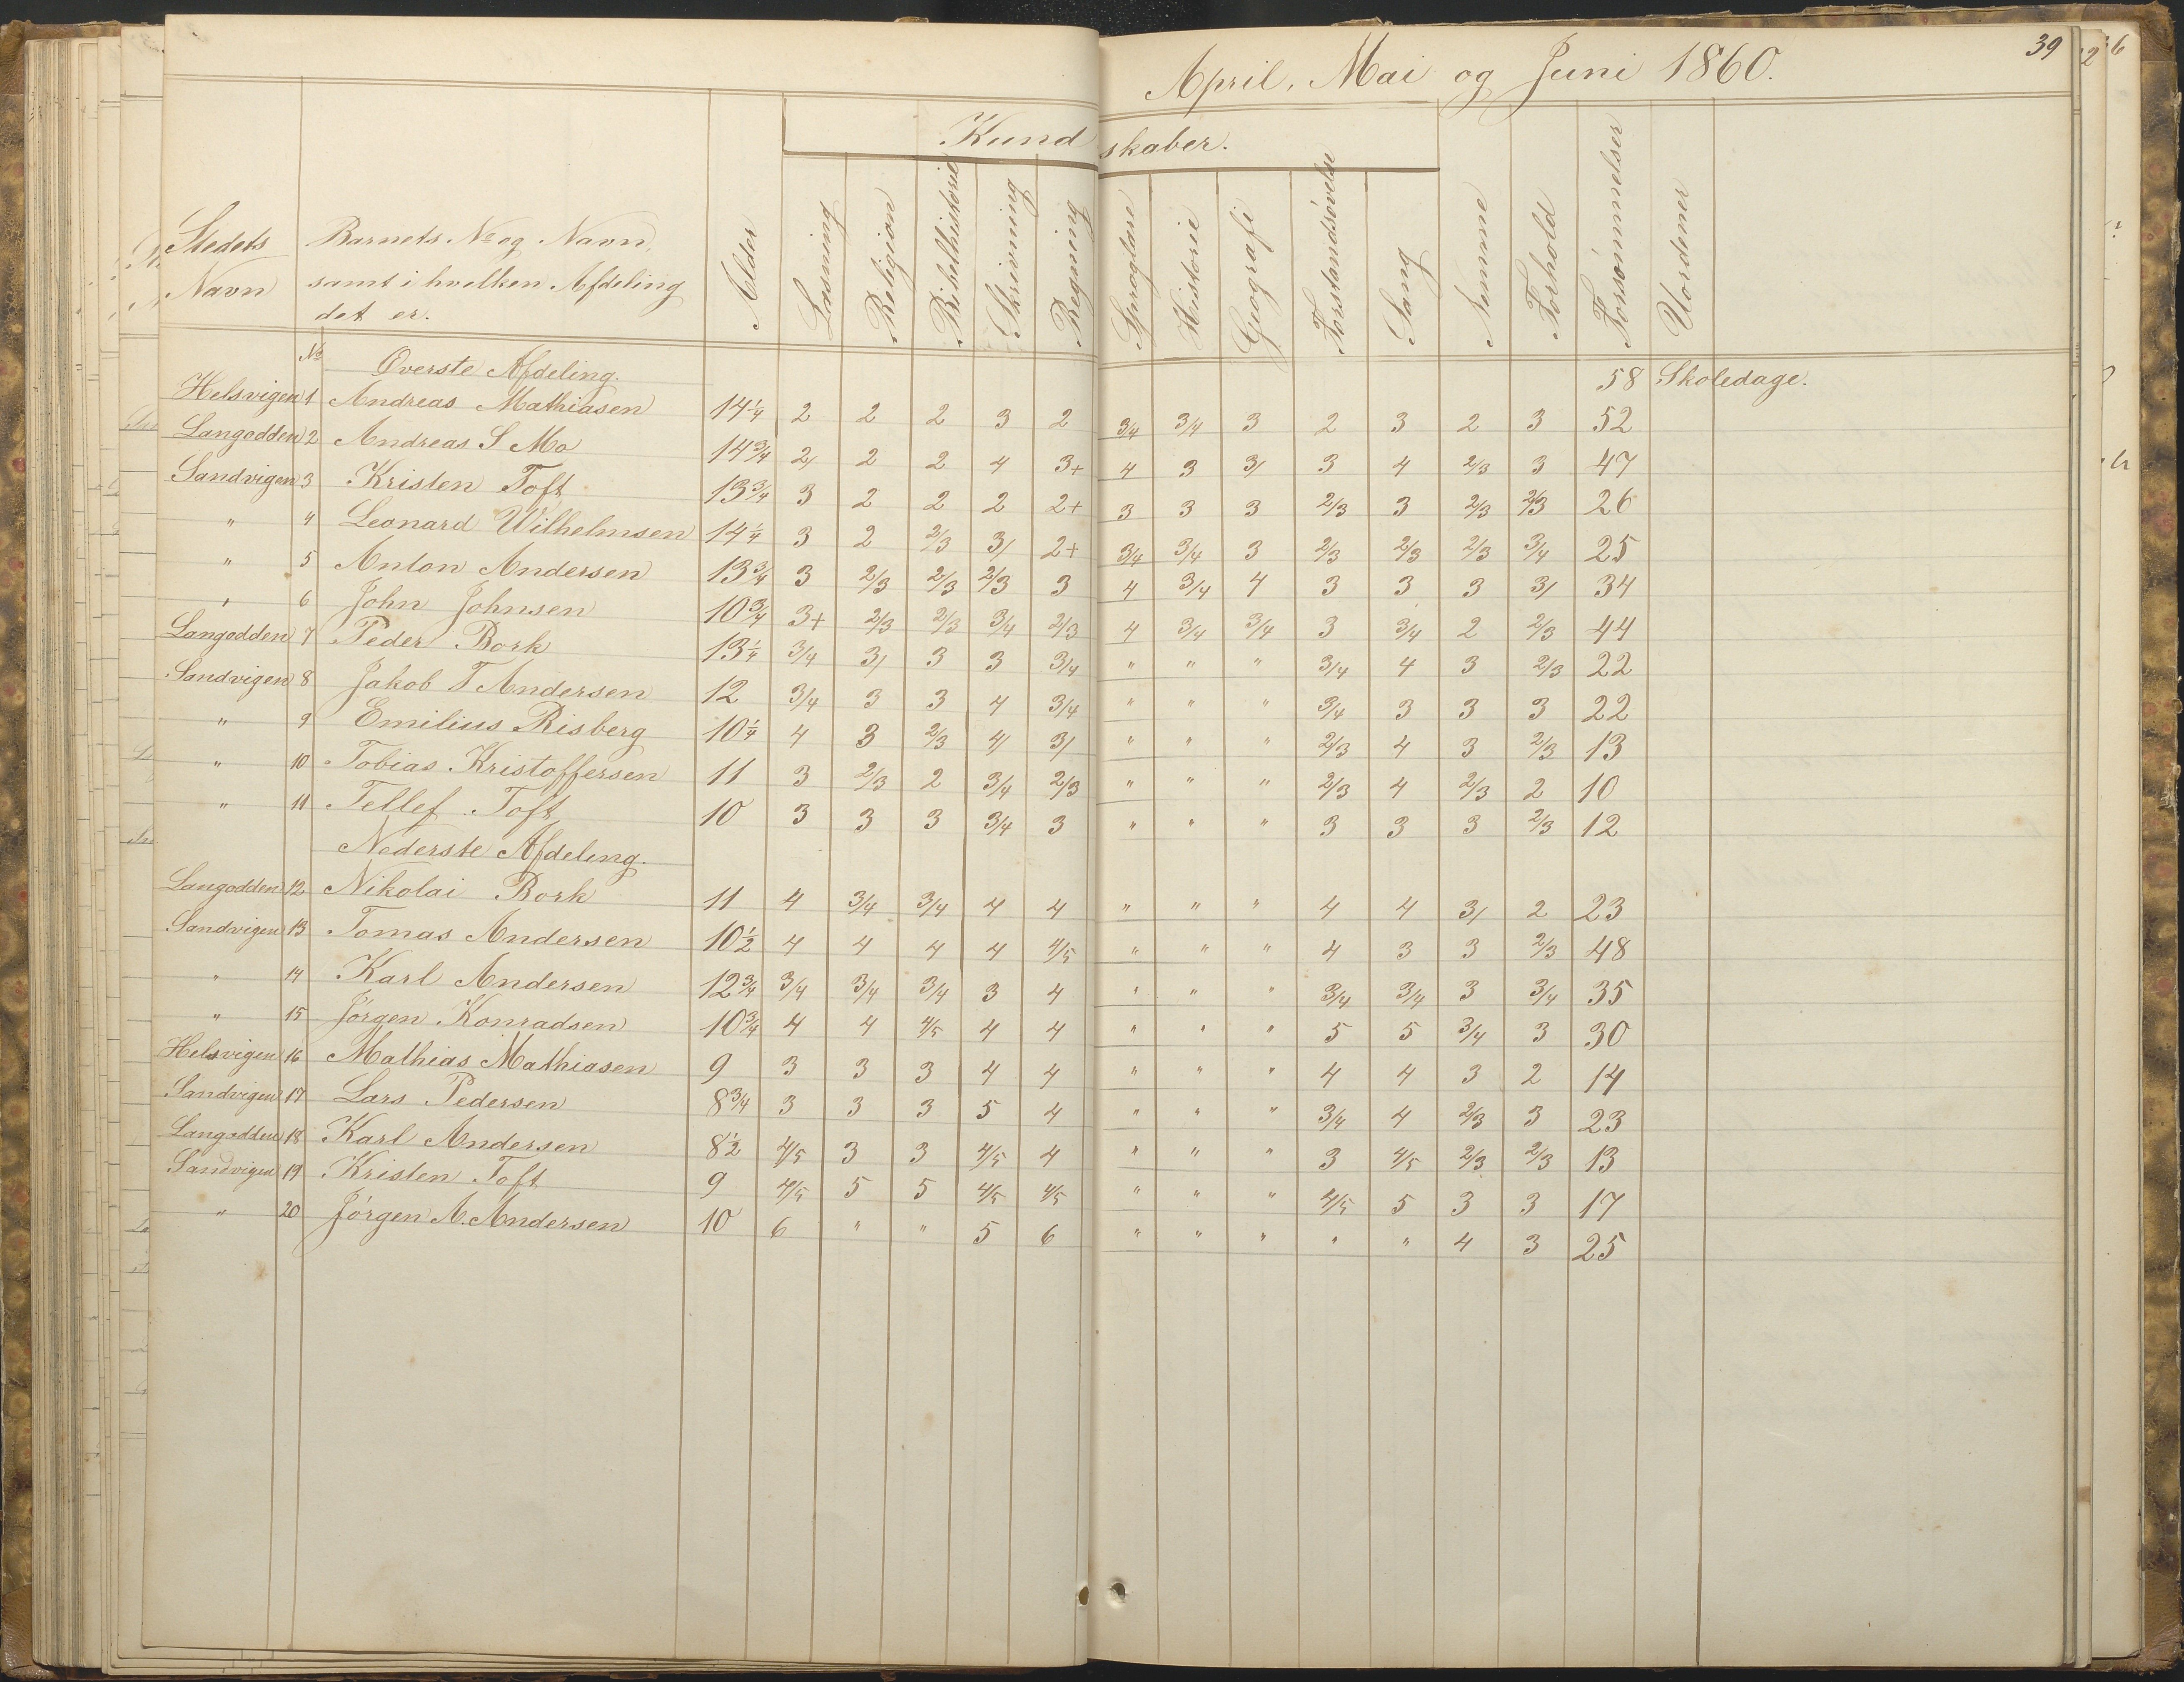 39
April, Mai og Juni 1860.
Kundskaber.
Stedets Navn | Barnets No og Navn, samt i hvilken Afdeling det er. | Alder | Læsning | Religion | Bibelhistorie | Skrivning | Regning | Sproglære | Historie | Geografi | Forstandsøvelse | Sang | Nemme | Forhold | Forsømmelser | Uordener
No Øverste Afdeling. 58 Skoledage.
Helsvigen 1 Andreas Mathiasen 14 1/4 2 2 2 3 2 3/4 3/4 3 2 3 2 3 52
Langodden 2 Andreas S Mo 14 3/4 2/ 2 2 4 3+ 4 3 3/ 3 4 2/3 3 47
Sandvigen 3 Kristen Toft 13 3/4 3 2 2 2 2+ 3 3 3 2/3 3 2/3 2/3 26
" 4 Leonard Wilhelmsen 14 1/4 3 2 2/3 3/ 2+ 3/4 3/4 3 2/3 2/3 2/3 3/4 25
" 5 Anton Andersen 13 3/4 3 2/3 2/3 2/3 3 4 3/4 4 3 3 3 3/ 34
" 6 John Johnsen 10 3/4 3+ 2/3 2/3 3/4 2/3 4 3/4 3/4 3 3/4 2 2/3 44
Langodden 7 Peder Bork 13 1/4 3/4 3/ 3 3 3/4 " " " 3/4 4 3 2/3 22
Sandvigen 8 Jakob T Andersen 12 3/4 3 3 4 3/4 " " " 3/4 3 3 3 22
" 9 Emilius Risberg 10 1/4 4 3 2/3 4/ 3/ " " " 2/3 4 3 2/3 13
" 10 Tobias Kristoffersen 11 3 2/3 2 3/4 2/3 " " " 2/3 4 2/3 2 10
" 11 Tellef Toft 10 3 3 3 3/4 3 " " " 3 3 3 2/3 12
Nederste Afdeling.
Langodden 12 Nikolai Bork 11 4 3/4 3/4 4 4 " " " 4 4 3/ 2 23
Sandvigen 13 Tomas Andersen 10 1/2 4 4 4 4 4/5 " " " 4 3 3 2/3 48
" 14 Karl Andersen 12 3/4 3/4 3/4 3/4 3 4 " " " 3/4 3/4 3 3/4 35
" 15 Jørgen Konradsen 10 3/4 4 4 4/5 4 4 " " " 5 5 3/4 3 30
Helsvigen 16 Mathias Mathiasen 9 3 3 3 4 4 " " " 4 4 3 2 14
Sandvigen 17 Lars Pedersen 8 3/4 3 3 3 5 4 " " " 3/4 4 2/3 3 23
Langodden 18 Karl Andersen 8 1/2 4/5 3 3 4/5 4 " " " 3 4/5 2/3 2/3 13
Sandvigen 19 Kristen Toft 9 4/5 5 5 4/5 4/5 " " " 4/5 5 3 3 17
" 20 Jørgen A. Andersen 10 6 " " 5 6 " " " " " 4 3 25